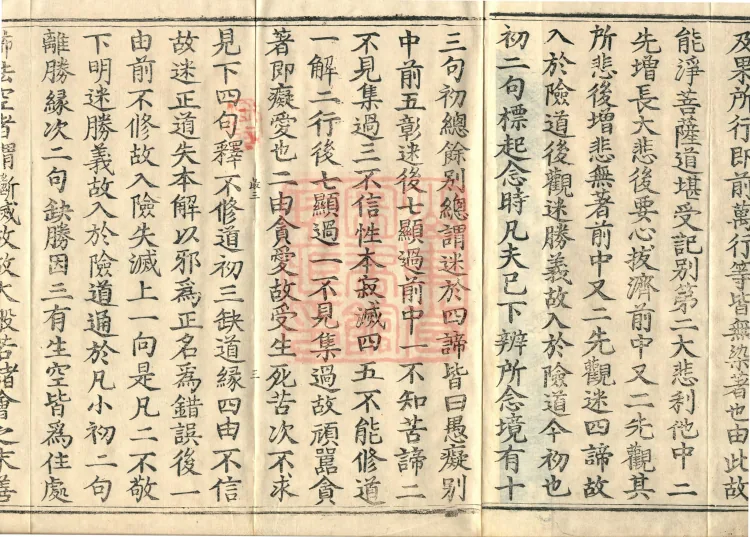 及果所行即前萬行等皆無染著也由此故
能淨菩薩道堪受記別第二大悲利他中二
先增長大悲後要心拔濟前中又二先觀其
所悲後增悲無著前中又二先觀迷四諦故
入於險道後觀迷勝義故入於險道今初也
初二句標起念時凡夫已下辨所念境有十
三句初總餘別總謂迷於四諦皆曰愚癡別
中前五彰迷後七顯過前中一不知苦諦二
不見集過三不信性本寂滅四五不能修道
一解二行後七顯過一不見集過故頑嚚貪
著即癡愛也二由貪愛故受生死苦次不求
見下四句釋不修道初三缺道緣四由不信
故迷正道失本解以邪為正名為錯誤後一
由前不修故入險失滅上一向是凡二不敬
下明迷勝義故入於險道通於凡小初二句
離勝緣次二句缺勝因三有生空皆為住處
諦法空者謂斷滅故故大般若諸會之末善